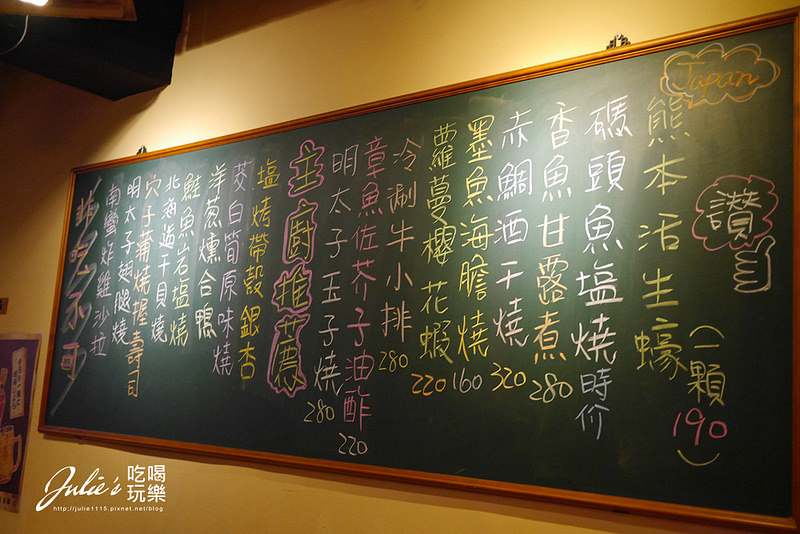 Japan
讚
熊本活生蠔
(一顆190)
碼頭魚塩燒 時价
香魚甘露煮 280
赤鯛酒干燒 320
墨魚海膽燒 160
蘿蔓櫻花蝦 220
冷涮牛小排 280
章魚佐芥子油酢 220
明太子玉子燒 280
主廚推薦
塩烤帶殼銀杏
茭白筍原味燒
洋葱燻合鴨
鮭魚岩塩燒
北海道干貝燒
穴子蒲燒握壽司
明太子雞腿燒
南蠻炸雞沙拉
非吃不可
Julie's 吃喝玩樂
http://julie1115.pixnet.net/blog